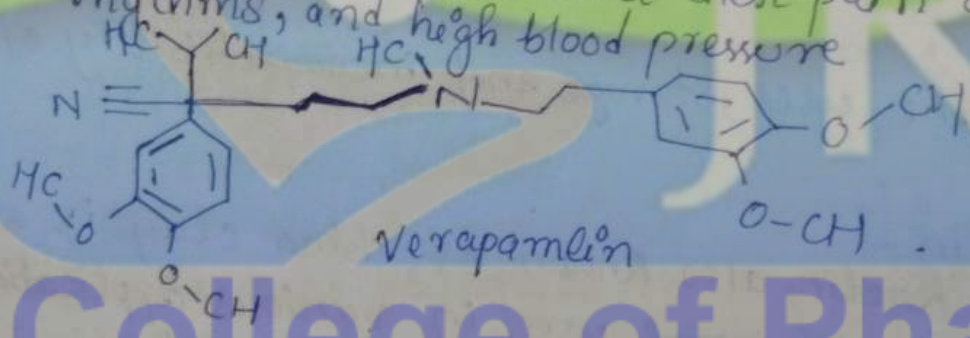 , and high blood pressure
HC CH HC
N N CH
O
HC
O O-CH
Verapamlin
O
CH
JR
College of Pha